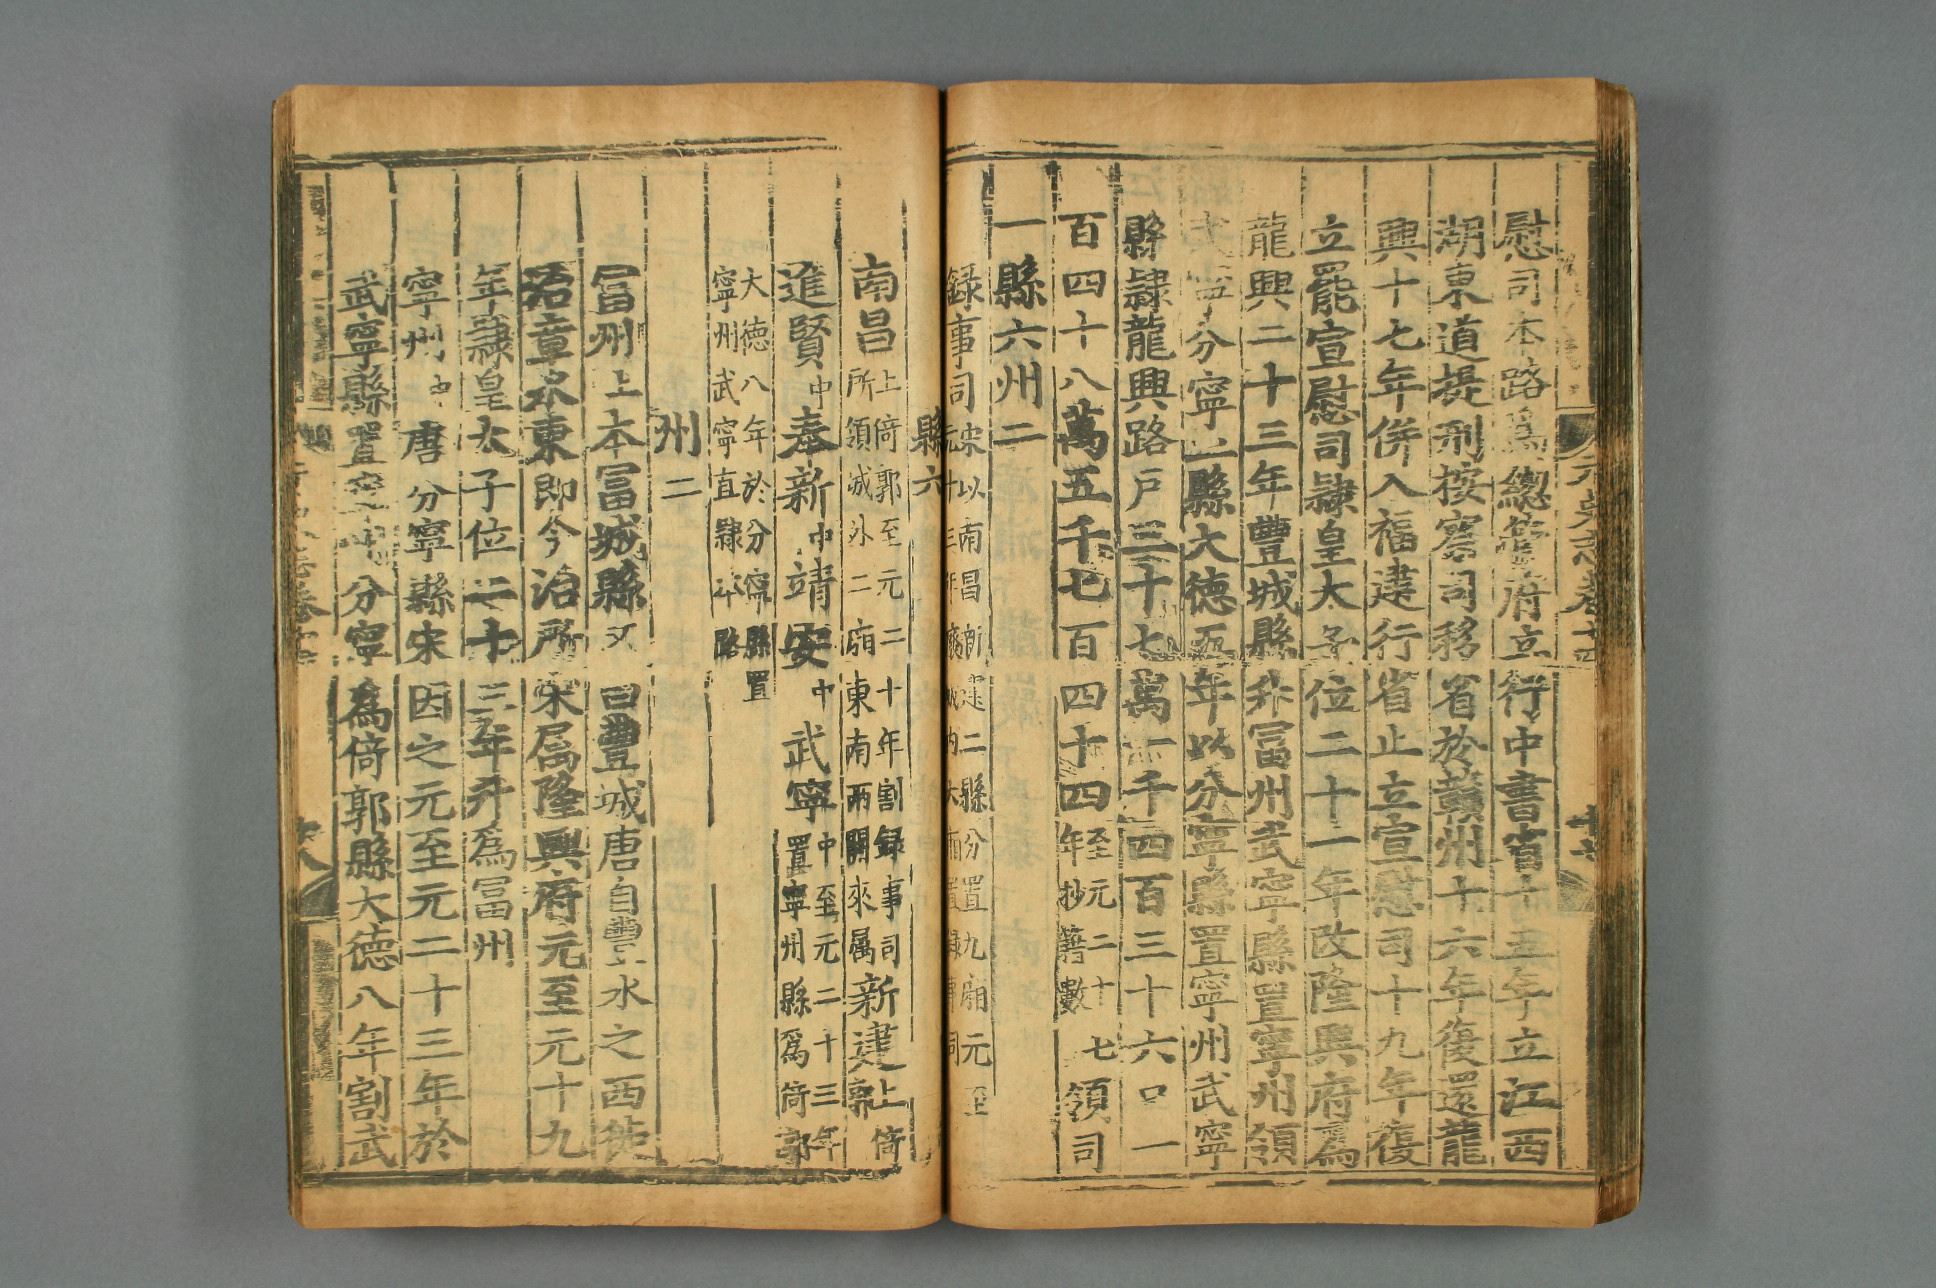 慰司本路爲總管府立行中書省十五年立江西
湖東道提刑按察司移省於贛州十六年復還龍
興十七年併入福建行省止立宣慰司十九年復
立罷宣慰司隸皇太子位二十一年改隆興府爲
龍興二十三年豐城縣升富州武寧縣置寧州領
武寧分寧二縣大德五年以分寧縣置寧州武寧
縣隸龍興路戶三十七萬一千四百三十六口一
百四十八萬五千七百四十四至元二十七年抄籍數領司
一縣六州二
錄事司宋以南昌新建二縣分置九廂元至元十三年廢城內六廂置錄事司
縣六
南昌上倚郭至元二十年割録事司所領城外二廂東南兩關來屬新建上倚郭
進賢中奉新中靖安中武寧中至元二十三年置寧州縣爲倚郭
大德八年於分寧縣置寧州武寧直隸本路
州二
富州上本富城縣又曰豐城唐自豐水之西徙
治章水東即今治所宋屬隆興府元至元十九
年隸皇太子位二十三年升爲富州
寧州中唐分寧縣宋因之元至元二十三年於
武寧縣置寧州分寧爲倚郭縣大德八年割武